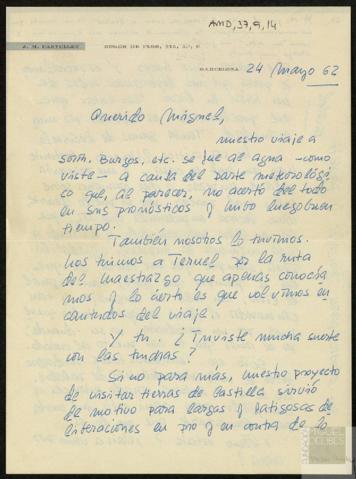 AMD, 37, 9, 14
J. M. CASTELLET
BARCELONA 24 Marzo 62
Querido Miguel,
nuestro viaje a
Soria. Burgos, etc. se fue al agua - como
viste - a causa del parte meteorológi
co que, al parecer, no acertó del todo
en sus pronósticos y hubo luego buen
tiempo.
También nosotros lo tuvimos.
Nos fuimos a Teruel por la ruta
del Maestrazgo que apenas conocía
mos y lo cierto es que volvimos en
cantados del viaje
Y tu. ¿Tuviste mucha suerte
con las truchas?
Si no para más, nuestro proyecto
de visitar tierras de Castilla sirvió
de motivo para largas y fatigosas de
liberaciones en pro y en contra de lo